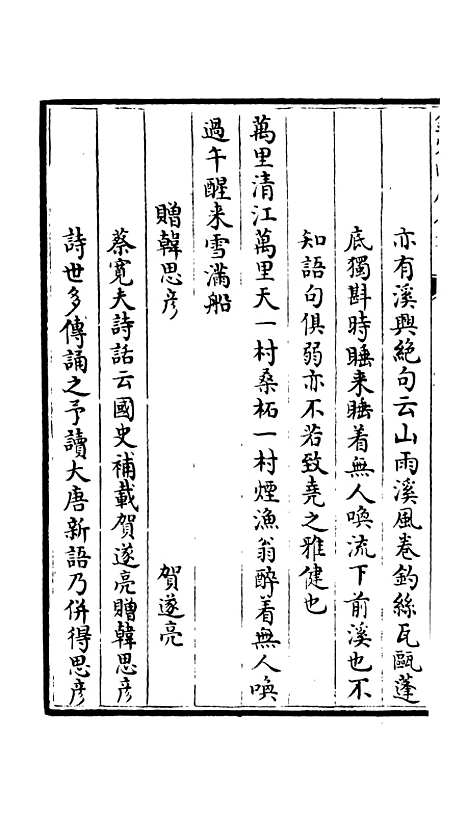 亦有溪興絶句云山雨溪風卷釣絲瓦甌蓬
底獨斟時睡来睡着無人喚流下前溪也不
知語句俱弱亦不若致堯之雅健也
萬里清江萬里天一村桑柘一村煙漁翁醉着無人喚
過午醒来雪滿船
贈韓思彦 賀遂亮
蔡寛夫詩話云國史補載賀遂亮贈韓思彦
詩世多傳誦之予讀大唐新語乃併得思彦